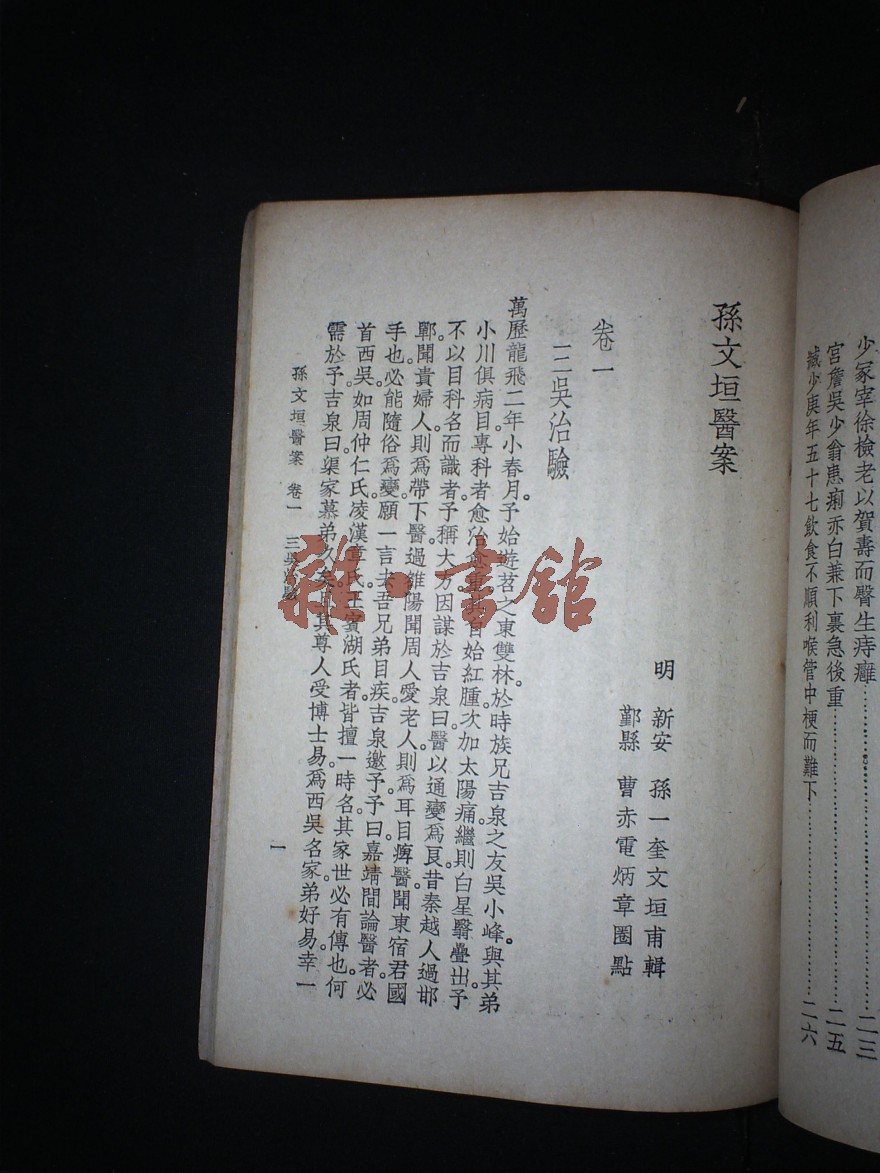 少冢宰徐檢老以賀壽而醫生痔癰……二三
宮詹吳少翁患痢赤白兼下裏急後重……二五
臧少庚年五十七飲食不順利喉管中梗而難下……二六
孫文垣醫案
明 新安 孫一奎文垣甫輯
鄞縣 曹赤電炳章圈點
卷一
三吳治驗
萬歷龍飛二年小春月。予始遊苕之東雙林。於時族兄吉泉之友吳小峰。與其弟
小川俱病目。專科者愈治愈重。其目始紅腫。次加太陽痛。繼則白星翳疊出。予
不以目科名。而識者予稱大方。因謀於吉泉曰。醫以通變為良。昔秦越人過邯
鄲。聞貴婦人。則為帶下醫。過雒陽。聞周人愛老人。則為耳目痺醫。聞東宿君國
手也。必能隨俗為變。願一言去吾兄弟目疾。吉泉邀予。予曰。嘉靖間論醫者。必
首西吳。如周仲仁氏。凌漢章氏。王賓湖氏者。皆擅一時名。其家世必有傳也。何
需於予。吉泉曰。渠家慕弟久矣。其尊人受博士易。為西吳名家。弟好易。幸一
孫文垣醫案 卷一 三吳治驗
一
雜·書館